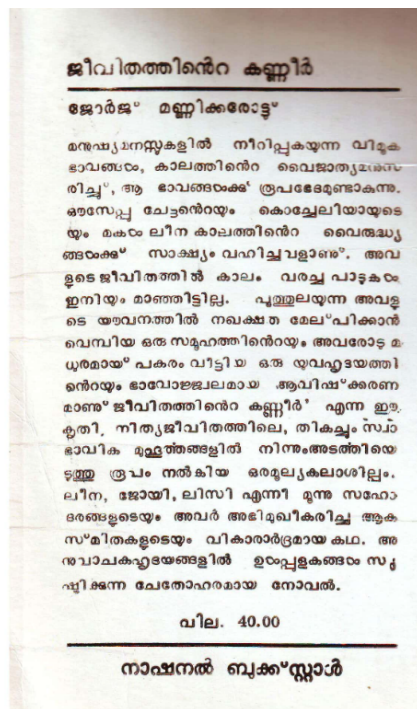 ജീവിതത്തിൻെറ കണ്ണീർ
ജോർജ് മണ്ണിക്കരോട്ട്
മനുഷ്യമനസ്സുകളിൽ നീറിപ്പുകയുന്ന വിമൂക
ഭാവങ്ങൾ, കാലത്തിൻെറ വൈജാത്യമനുസ
രിച്ച്, ആ ഭാവങ്ങൾക്ക് രൂപഭേദമുണ്ടാകുന്നു.
ഔസേപ്പു ചേട്ടൻെറയും കൊച്ചേലിയായുടെ
യും മകൾ ലീന കാലത്തിൻെറ വൈരുദ്ധ്യ
ങ്ങൾക്കു് സാക്ഷ്യം വഹിച്ചവളാണു്. അവ
ളുടെ ജീവിതത്തിൽ കാലം വരച്ച പാടുകൾ
ഇനിയും മാഞ്ഞിട്ടില്ല. പൂത്തുലയുന്ന അവളു
ടെ യൗവനത്തിൽ നഖക്ഷത മേല്പിക്കാൻ
വെമ്പിയ ഒരു സമൂഹത്തിൻെറയും അവരോടു മ
ധുരമായ് പകരം വീട്ടിയ ഒരു യുവഹൃദയത്തി
ൻെറയും ഭാവോജ്ജ്വലമായ ആവിഷ്ക്കരണ
മാണു് ജീവിതത്തിൻെറ കണ്ണീർ' എന്ന ഈ
കൃതി. നിത്യജീവിതത്തിലെ, തികച്ചും സ്വാ
ഭാവിക മുഹൂർത്തങ്ങളിൽ നിന്നുംഅടത്തിയെ
ടുത്തു രൂപം നൽകിയ ഒരമൂല്യകലാശില്പം.
ലീന, ജോയി, ലിസി എന്നീ മൂന്നു സഹോ
ദരങ്ങളുടെയും അവർ അഭിമുഖീകരിച്ച ആക
സ്മിതകളുടെയും വികാരാർദ്രമായ കഥ. അ
നുവാചകഹൃദയങ്ങളിൽ ഉൾപ്പുളകങ്ങൾ സൃ
ഷ്ടിക്കുന്ന ചേതോഹരമായ നോവൽ.
വില. 40.00
നാഷനൽ ബുക്ക്സ്റ്റാൾ